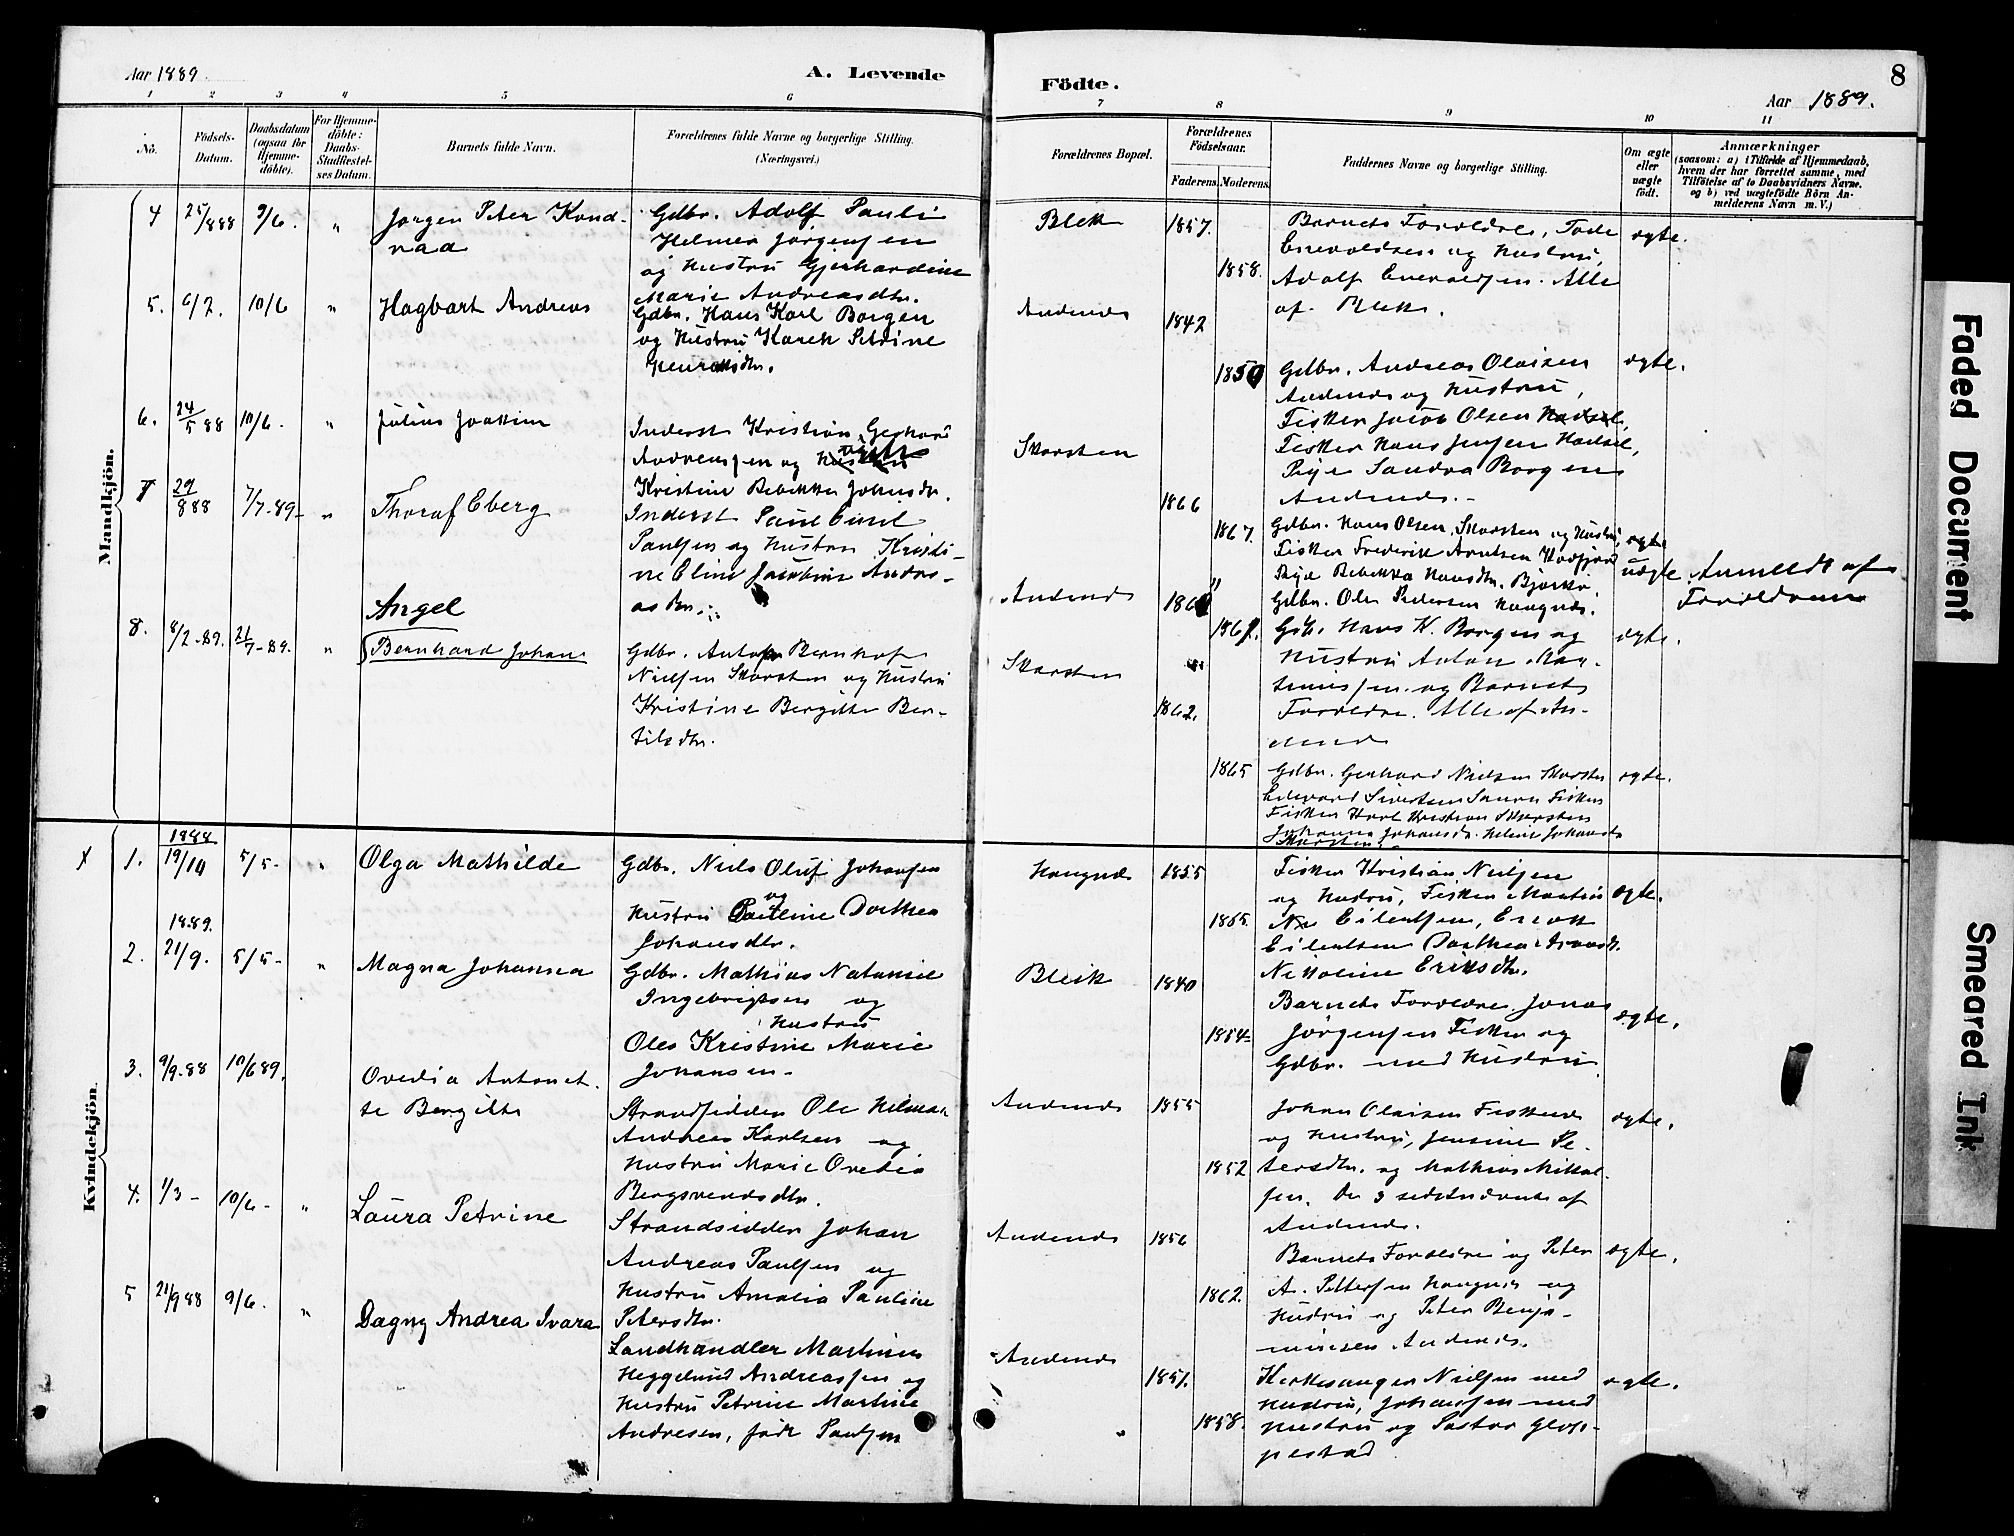 Aar 1889.
A. Levende
1 2 3 4 5 6
No.
Födsels-
Datum.
Daabsdatum
(ogsaa for
Hjemme-
döbte).
For Hjemme-
döbte:
Daabs-
Stadfæstel-
ses Datum.
Barnets fulde Navn.
Forældrenes fulde Navne og borgerlige Stilling.
(Næringsvei.)
Mandkjön.
4 25/888 9/6. " Jørgen Peter Kond-
raa
Gdbr. Adolf Pauli
Helmer Jørgensen
og Hustru Gjerhardine
Marie Andreasdtr.
5. 6/2. 10/6 " Hagbart Andreas
Gdbr. Hans Karl Borgen
og Hustru Karen Petrine
Henriksdtr.
6. 24/5 88 10/6. " Julius Joakim
Inderst Kristian Gerhard
Andreassen og Hustru
Kristine Bebekka Johnsdtr.
7 29/888 7/7-89- " Thoraf Eberg
Inderst Paul Emil
Paulsen og Hustru Kristi-
ne Eline Jacobine Andre-
as Dtr.
Angel
8. 8/2-89. 21/7-89. " Bernhard Johan
Gdbr. Anton Bernhof
Nielsen Skarsten og Hustru
Kristine Bergitte Ber-
tilsdtr.
Kvindekjön.
1888
x 1. 19/10 5/5- " Olga Mathilde
Gdbr. Niels Oluf Johansen
og
Hustru Pauline Dorthea
Johansdtr.
1889.
2. 21/9. 5/5- " Magna Johanna
Gdbr. Mathias Nataniel
Ingebrigtsen og
Hustru
Oles Kristine Marie
Johansen-
3. 9/9-88 10/689. Ovedia Antonet-
te Bergitte
Strandsidder Ole Hilmar
Andreas Karlsen og
Hustru Marie Ovedia
Bergsvendsdtr.
4. 1/3- 10/6- " Laura Petrine
Strandsidder Johan
Andreas Paulsen og
Hustru Amalia Pauline
Petersdtr.
5 21/9 88 9/6. " Dagny Andrea Ivara
Landhandler Martinus
Heggelund Andreassen og
Hustru Petrine Martine
Andresen, født Paulsen
Födte.
8
Aar 1889.
7 8 9 10 11
Forældrenes Bopæl.
Forældrenes
Födselsaar.
Faderens. Moderens.
Faddernes Navne og borgerlige Stilling.
Om ægte
eller
uægte
födt.
Anmærkninger
(saasom: a) i Tilfælde af Hjemmedaab,
hvem der har forrettet samme, med
Tilföielse af to Daabsvidners Navne.
og b) ved uægtefödte Börn An-
melderens Navn m. V.)
Bleik 1857. 1858.
Barnets Forældre, Tode
Enevoldsen og Hustru,
Adolf Enevoldsen. Alle
af Bleik.
ægte.
Andenes 1842 1850
Gdbr. Andreas Olaisen
Andenes og Hustru,
Fisker Jacob Olsen Hadsel,
Fisker Hans Jensen Hadsel,
Pige Sandra Borgen
Andenes.-
ægte.
Skarsten 1866 1867.
Gdbr. Hans Olsen, Skarsten og Hustru,
Fisker Frederik Arntsen
Pige Bebekka Hansdtr. Bjarkø.
Gdbr. Ole Pedersen Haugnes.
ægte
Andenes 186 186
Gdb. Hans K. Borgen og
Hustru Anton Mar-
tinussen og Barnets
Forældre. Alle af An-
denes
uægte. Anmeldt af
Forældrene
ægte.
Skarsten 1862. 1865
Gdbr. Gerhard Nielsen Skarsten
Edevard Sivertsen Fisker
Fisker Karl Kristian Skarsten
Johanna Johansdtr. Helene Johansdtr
Skarsten.
ægte.
Haugnes 1855 1865.
Fisker Kristian Nielsen
og Hustru, Fisker Martin
Eilertsen,
Eilertsen Dorthea
Nikoline Eriksdtr.
ægte.
Bleik 1840 1854-
Barnets Forældre Jonas
Jørgensen Fisker og
Gdbr. med Hustru
ægte.
Andenes 1855 1852
Johan Olaisen
og Hustru, Jensine Pe-
tersdtr. og Mathias Mikkel-
sen. De 3 sidstnævnte af
Andenes.
ægte.
Andenes 1856 1862.
Barnets Forældre og Peter
A. Pettersen Haugnes og
Hustru og Peter Benja-
minsen Andenes.
ægte.
Andenes 1851. " 1858.
Kirkesanger Nielsen med
Hustru, Johansen med
Hustru og Pastor Glop-
pestad
ægte.
Faded Document
Smeared Ink